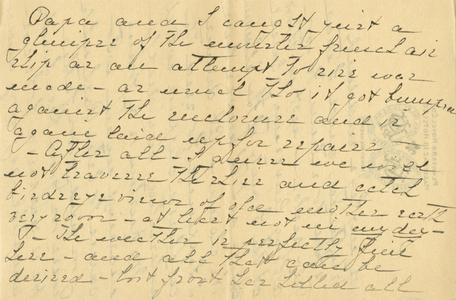 Papa and I caught just a
glimpse of the monster french air
ship as an attempt to rise was
made - as usual tho it got bumped
against the enclosure and is
again laid up for repairs -
- After all - I guess we
not traverse the skies and catch
birdseye views of ole mother earth
very soon - at least not in my day -
- The weather is perfectly fine
here - and all that can be
desired - lost frost has killed all